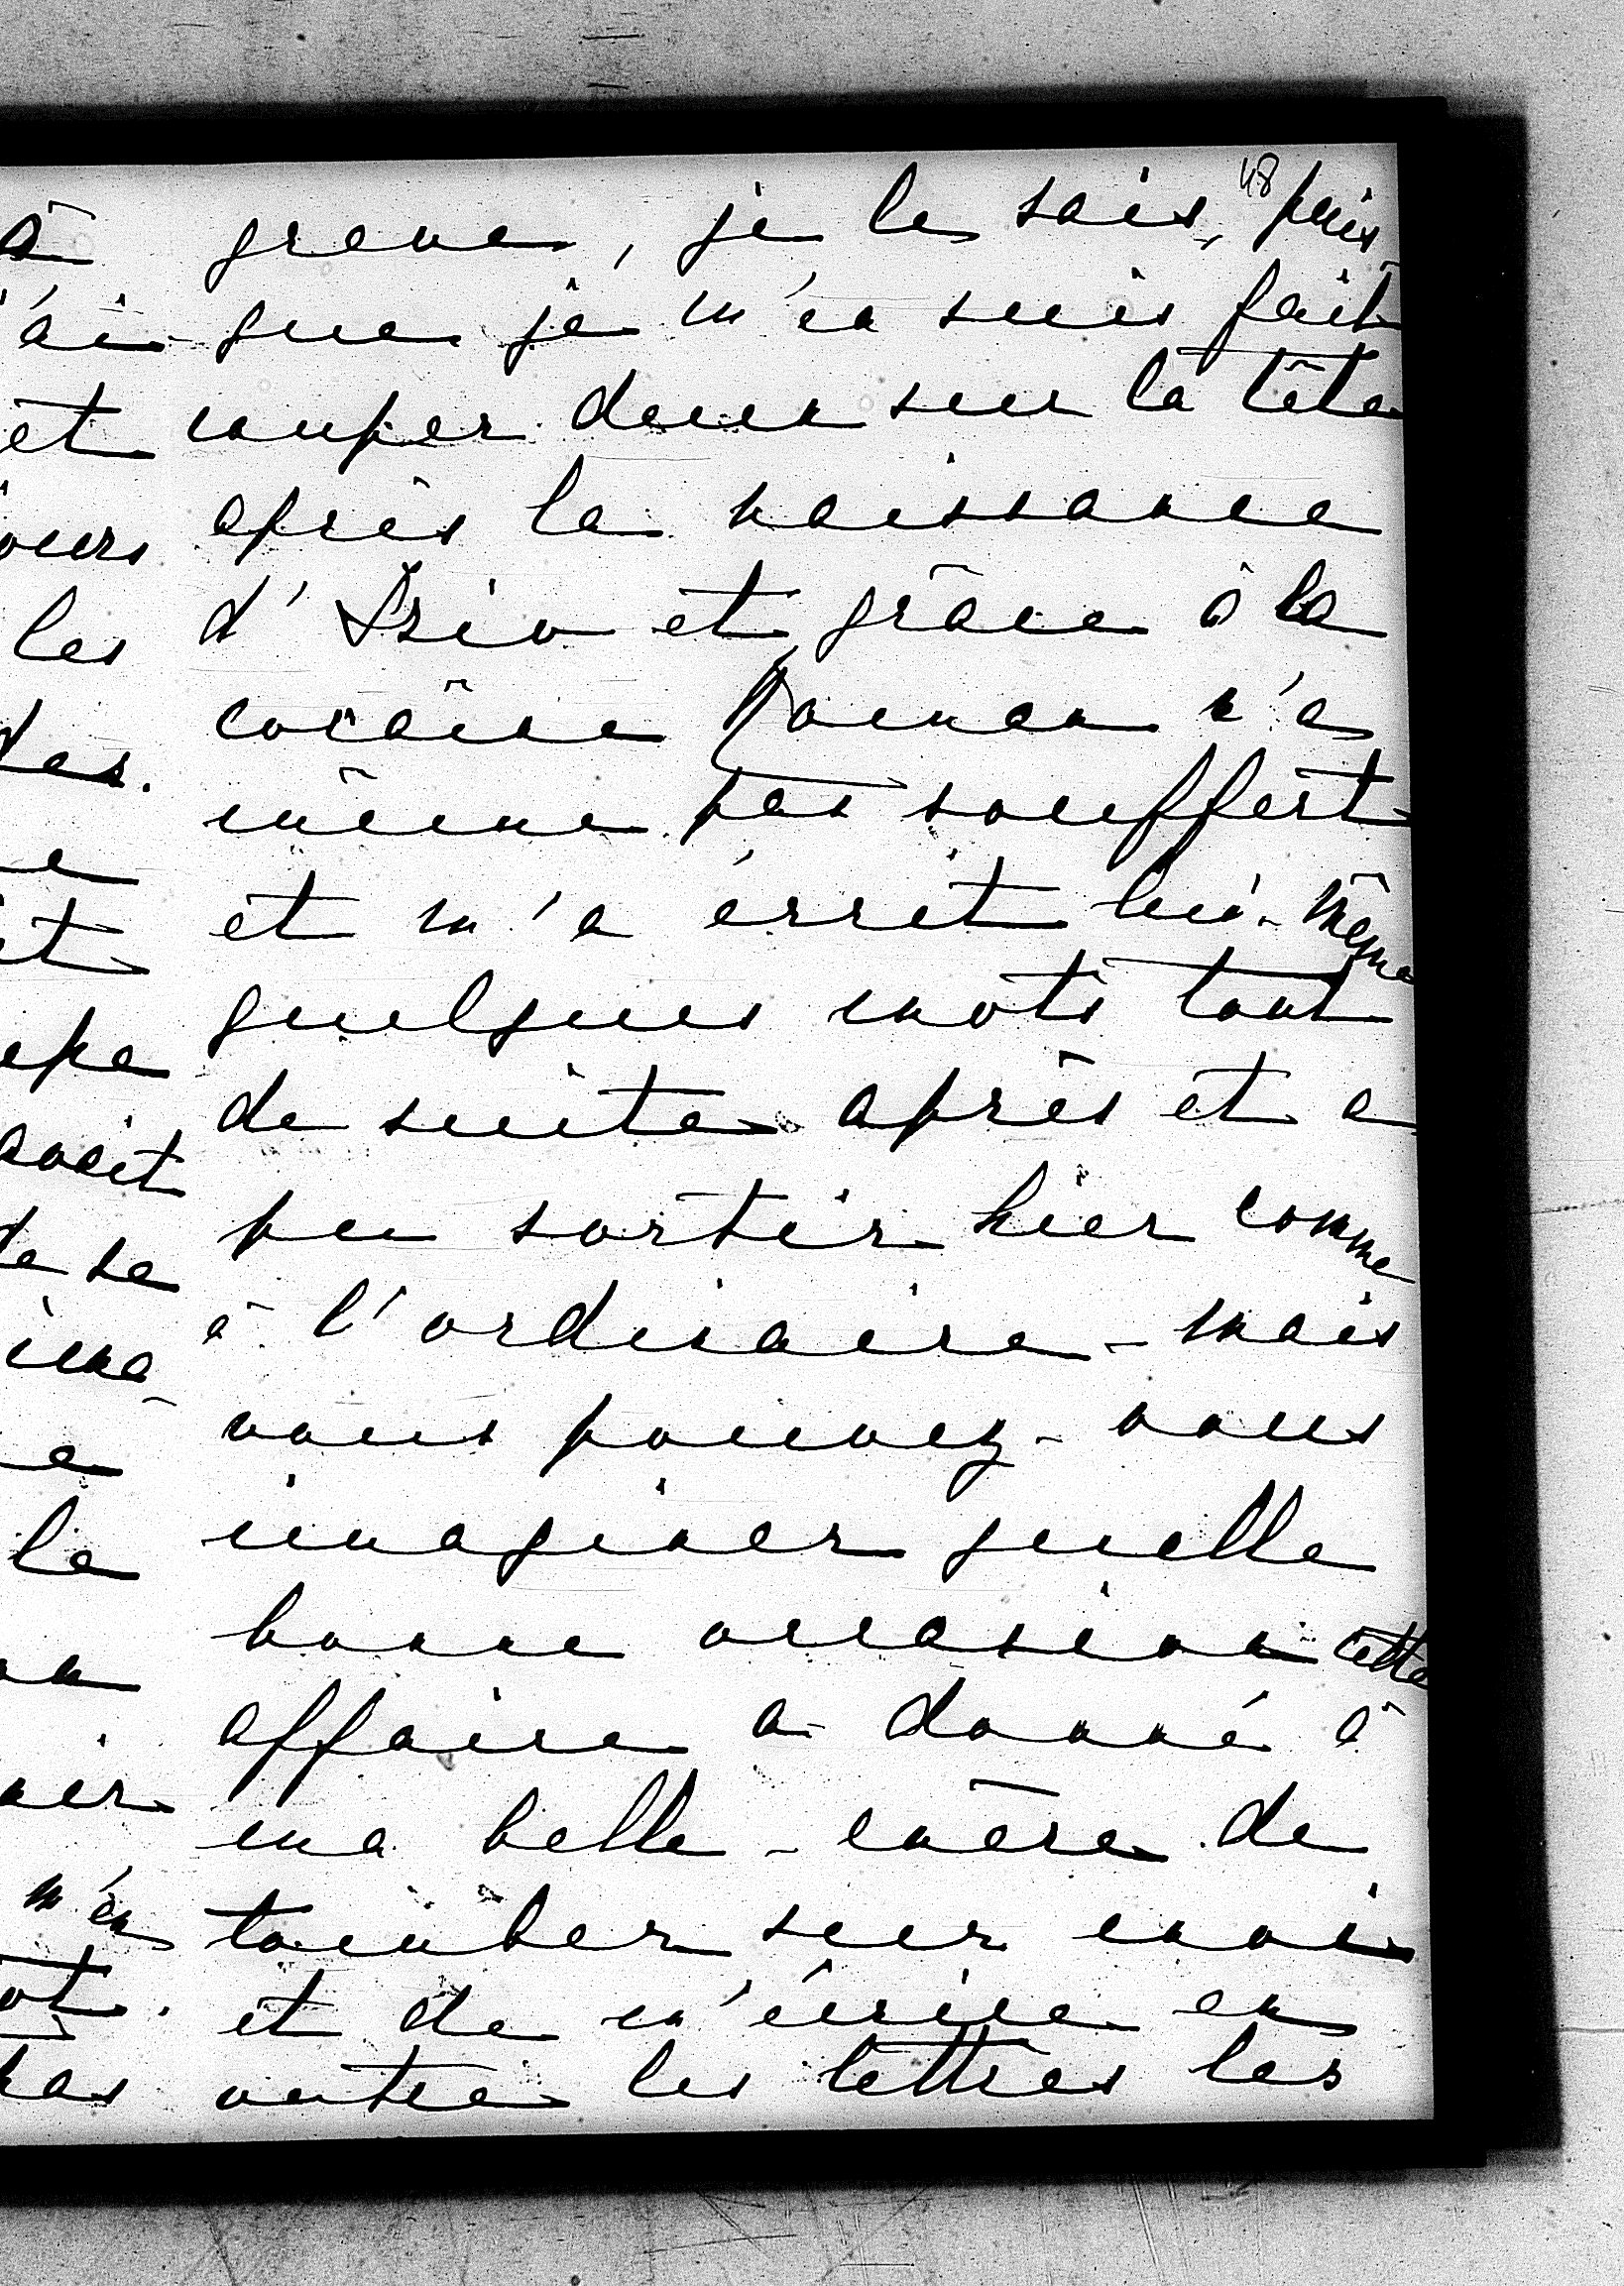 à
'ai
et
ours
les
des.
avait
de se
le
m'en
pas
48
grave, je le sais, puis
que je m'en suis fait
couper deux sur la tête
après la naissance
et grâce à la
cocaïne n'a
même pas souffert
et m'a écrit lui-même
quelques mots tout
de suite après et a
pu sortir hier comme
à l'ordinaire - mais
vous pouvez-vous
imaginer quelle
bonne occasion cette
affaire a donné à
ma belle-mère de
tomber sur moi
et de m'écrire en
outre les lettres les